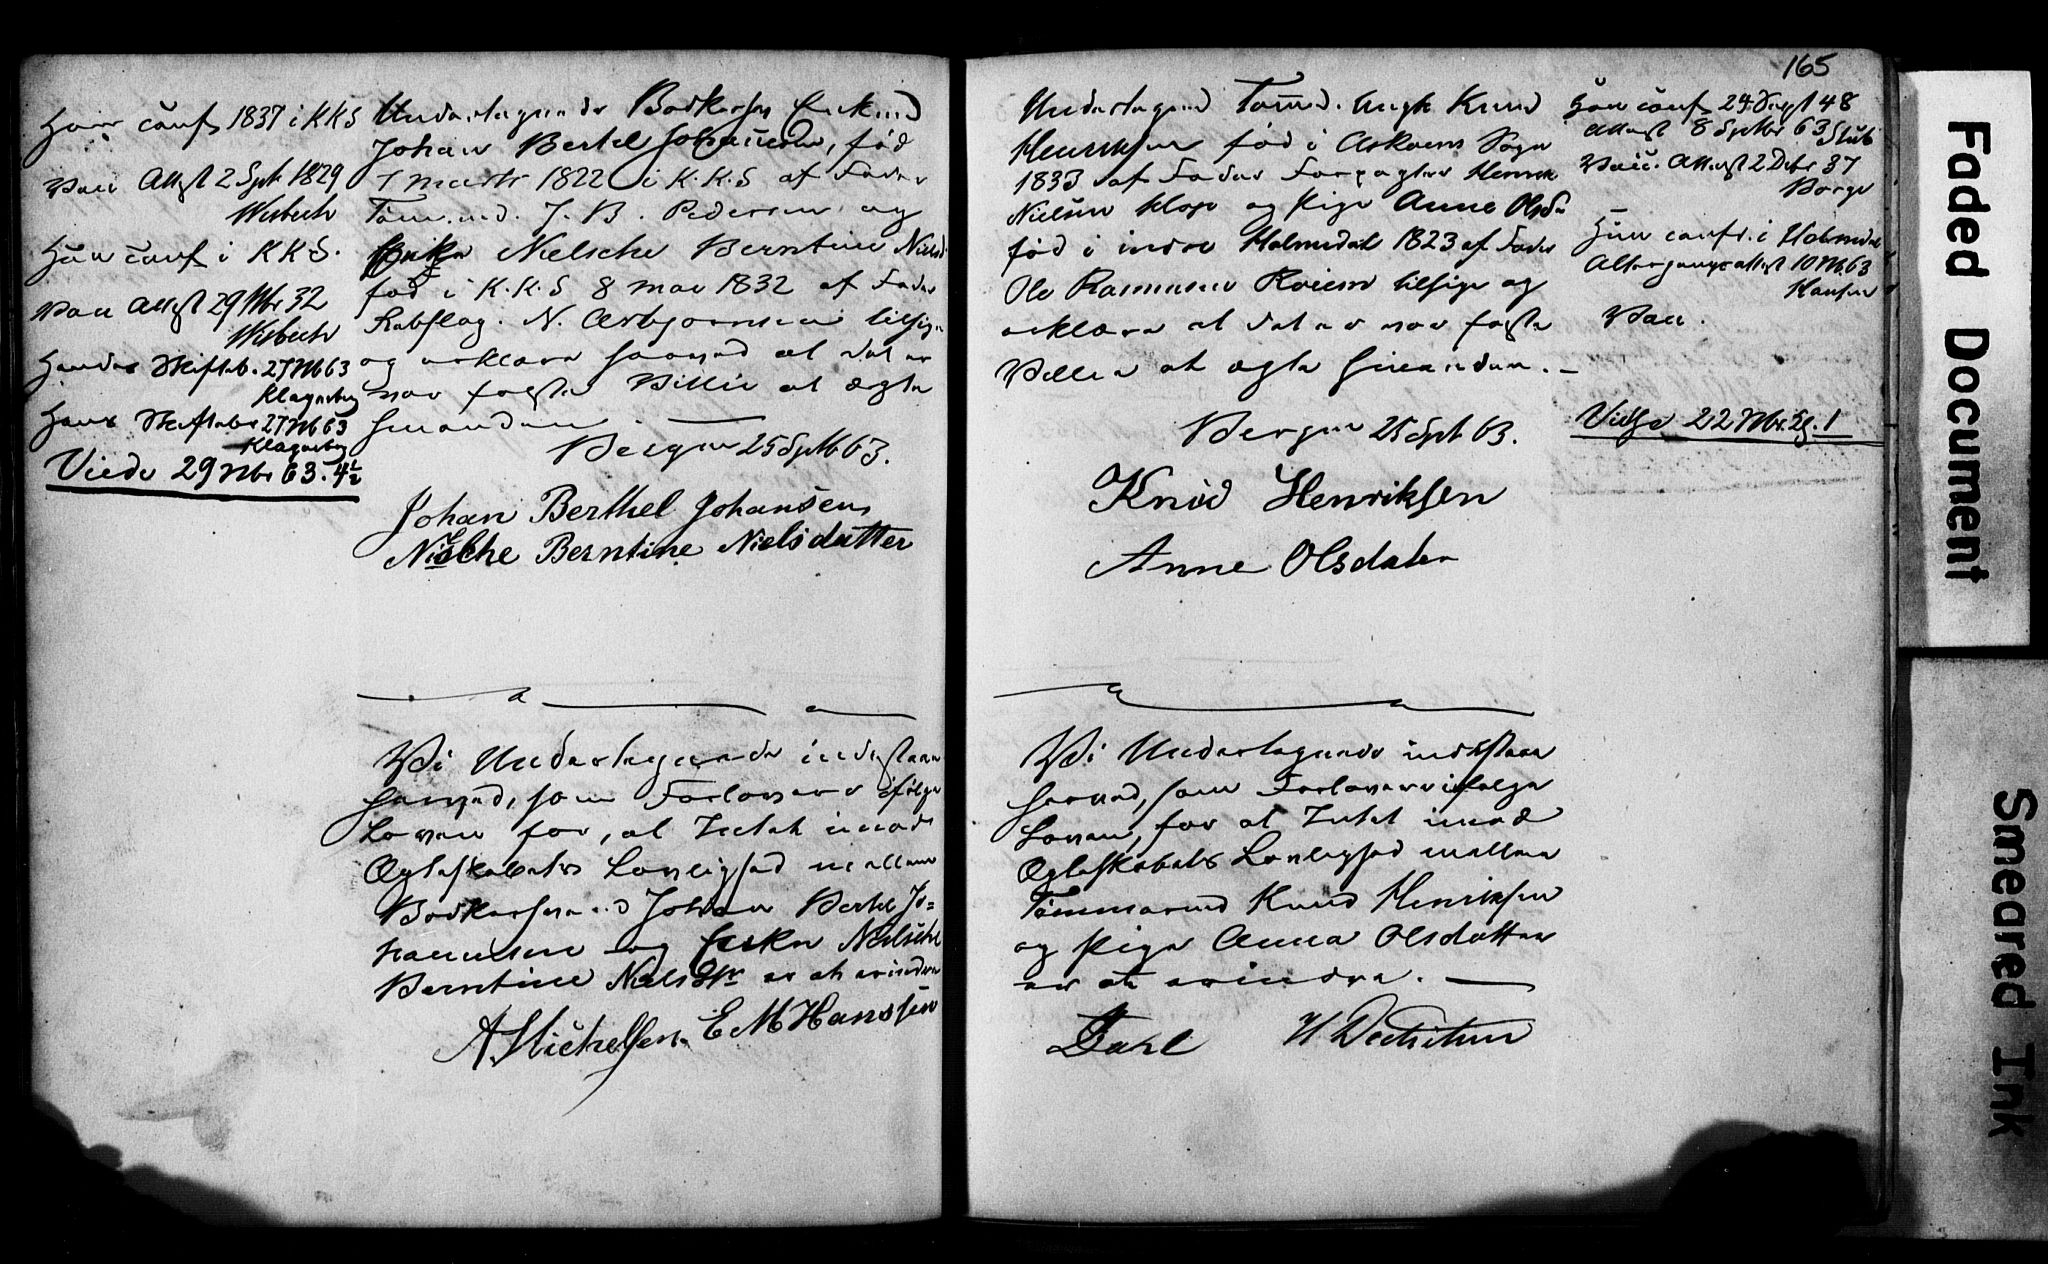 Han conf 1837 i K K S
Vacc Attest 2 Sept 1829
Wisbech
Hun conf i K K S.
Vacc Attest 29 Nbr 32
Wisbech
Skifteb. 27 Nb 63
Klagenberg
Hans Skifteb 27 Nb 63
Klagenberg
Viede 29 Nbr 63. 4½
Undertegnede Bødkersv Enkemd
Johan Bertel Johannesen, fød
1 marts 1822 i K.K.S af Fader
Tømmd. J. B. Pedersen og
Enke Nielsche Berntine Nielsd
fød i K.K.S 8 mai 1832 af Fader
N. Asbjørnsen tilsige
og erklære herved at det er
vor faste Villie at ægte
hinanden
Bergen 25 Sptb 63.
Johan Berthel Johansen,
Nilsche Berntine Nielsdatter
Vi Undertegnede indestaae
herved, som Forlovere ifølge
Loven for, at Intet imod
Ægteskabets Lovlighed mellem
Bødkersvend Johan Bertel Jo=
hannesen og Enke Nielsche
Berntine Nielsdtr er at erindre
A. Michelsen. E M Hanssen
165
Undertegnede Tømmd. Ungk Knud
Henriksen født i Askøens Sogn
1833 af Fader Forpagter Henrik
Nielsen og Pige Anne Olsdr
fød i indre Holmedal 1823 af Fader
Ole Rasmussen tilsige og
erklære at det er vor faste
Villie at ægte hinanden. —
Bergen 25 Spt 63.
Knud Henriksen
Anne Olsdater
Vi Undertegnede indestaae
herved, som Forlovere ifølge
Loven, for at Intet imod
Ægteskabets Lovlighed mellem
Tømmermd Knud Henriksen
og Pige Anna Olsdatter
er at erindre. —
Dahl
Han conf 24 Sept 48
Attest 8 Septbr 63 Stub
Vacc. Attest 2 Dcbr 37
Borge
Hun conf. i Holmedal
Altergangsattest 10 Nb 63
Hansen
Vacc.
Viede 22 Nbr. Kl. 1
Faded Document
Smeared Ink